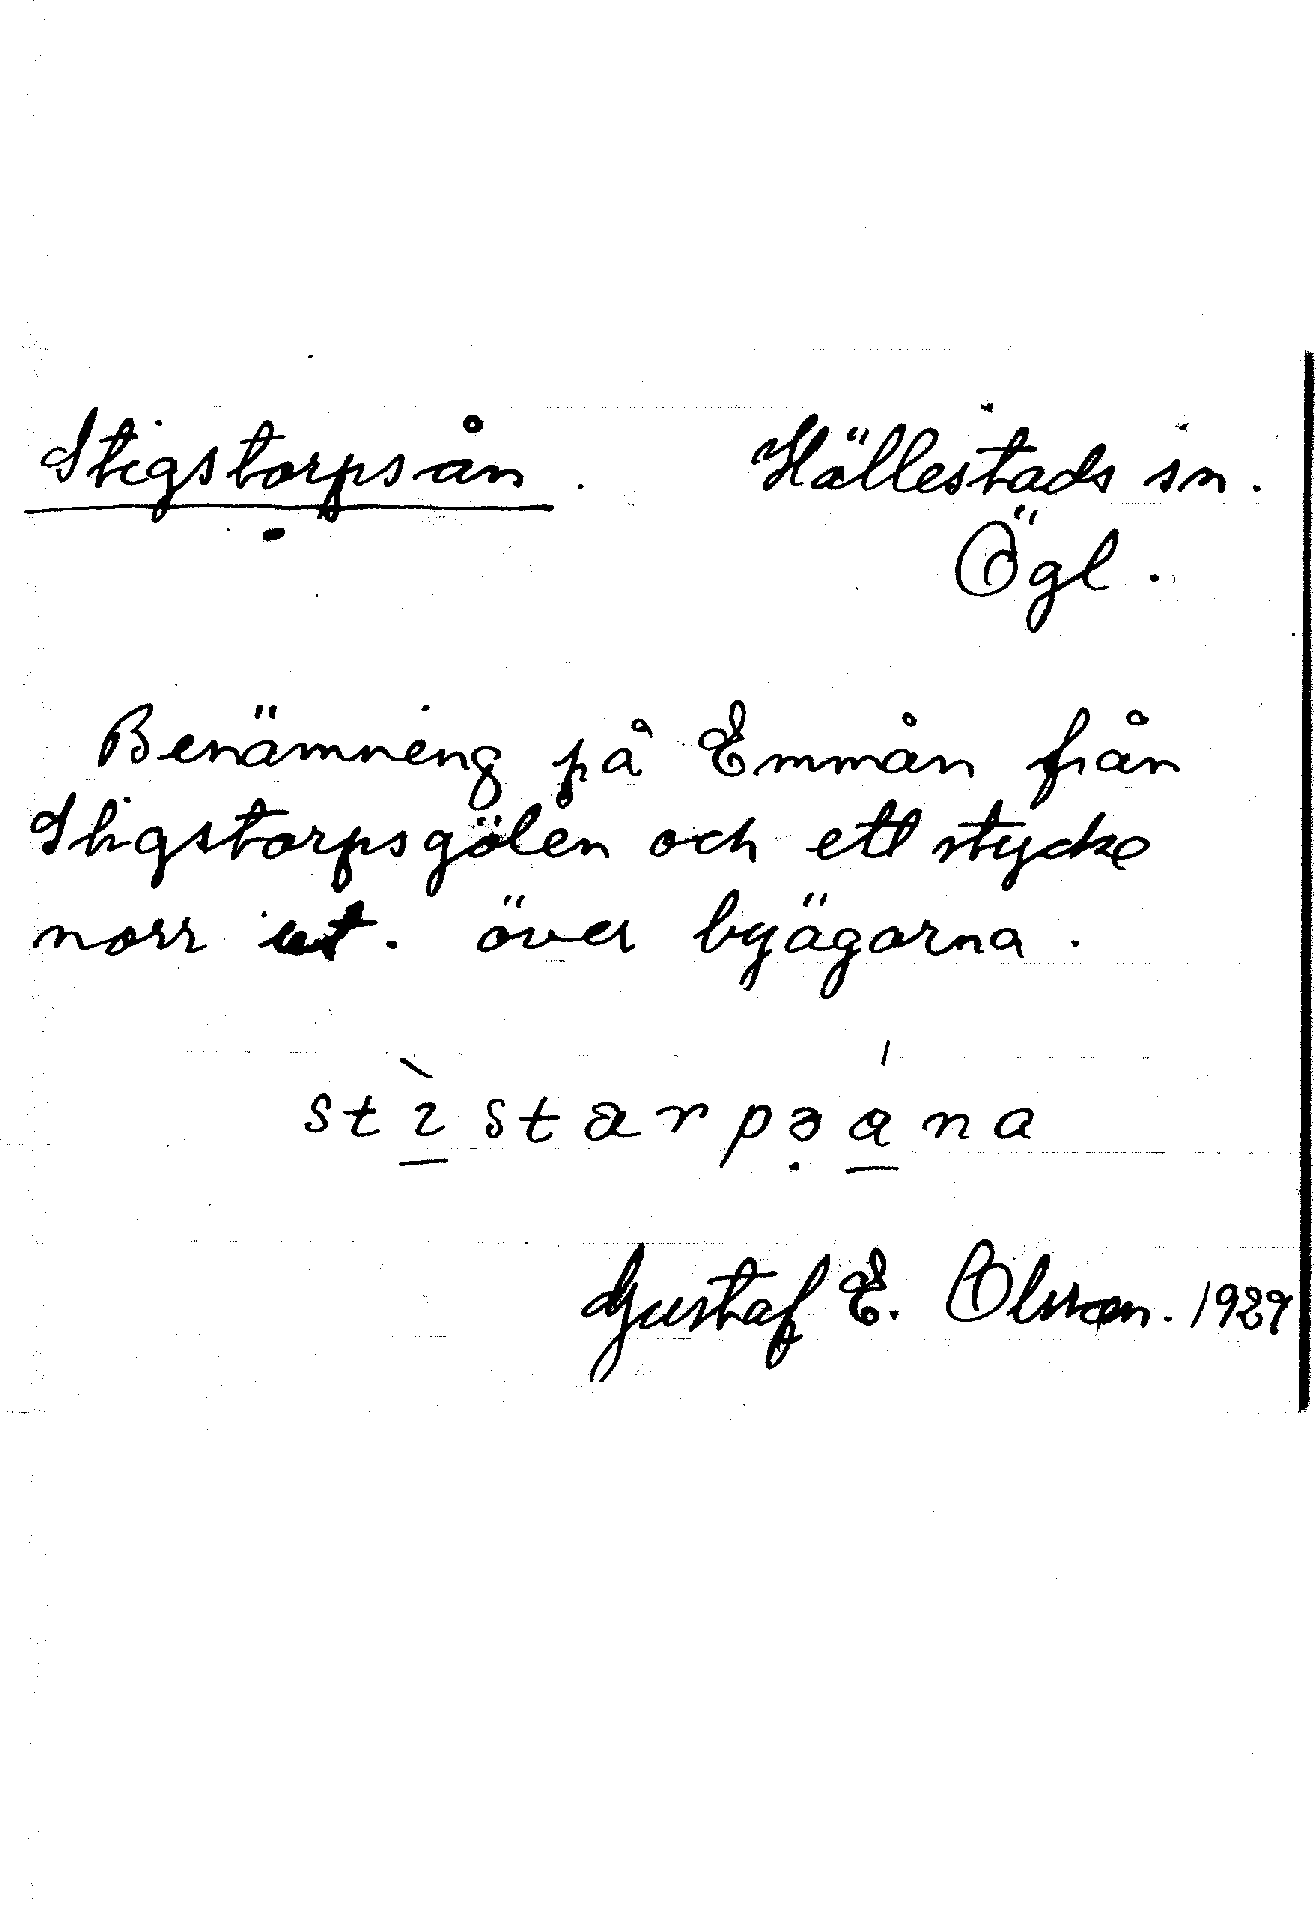 Stigstorpsån. Hällestads sn.
Ögl.
Benämning på Emmån från
Stigstorpsgölen och ett stycke
norr ut. över byägorna.
Gustaf E. Olsson. 1929